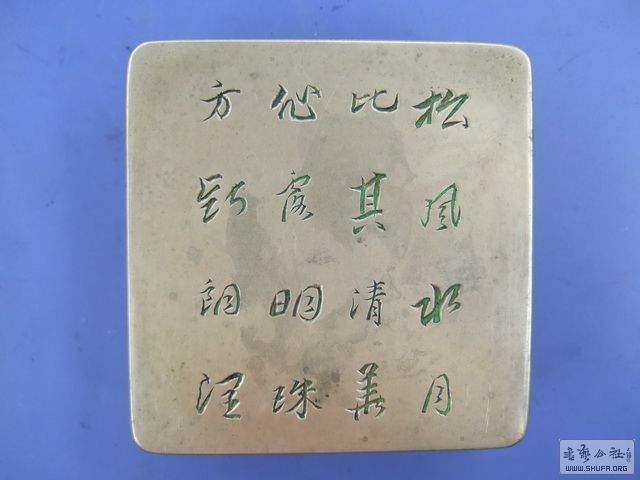 松風水月
比其清華
仙露明珠
方斯朗潤
書藝公社
WWW.SHUFA.ORG